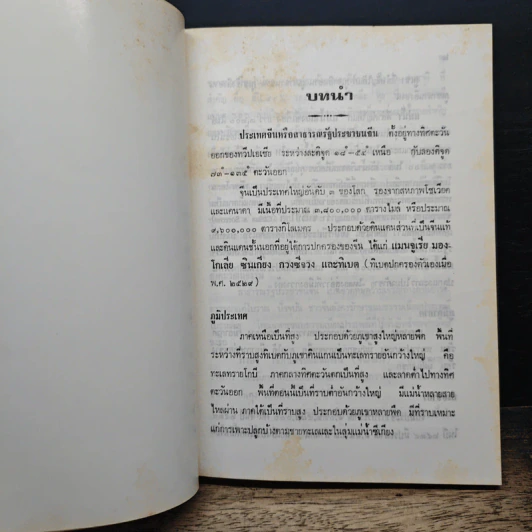 บทนำ
ประเทศจีนหรือสาธารณรัฐประชาชนจีน ตั้งอยู่ทางทิศตะวัน
ออกของทวีปเอเซีย ระหว่างละติจูด ๑๘° - ๕๔° เหนือ กับลองติจูด
๗๓° - ๑๓๕° ตะวันออก
จีนเป็นประเทศใหญ่อันดับ ๓ ของโลก รองจากสหภาพโซเวียต
และแคนาดา มีเนื้อที่ประมาณ ๓,๘๐๐,๐๐๐ ตารางไมล์ หรือประมาณ
๙,๖๐๐,๐๐๐ ตารางกิโลเมตร ประกอบด้วยดินแดนส่วนที่เป็นจีนแท้
และดินแดนชั้นนอกที่อยู่ใต้การปกครองของจีน ได้แก่ แมนจูเรีย มอง-
โกเลีย ซินเกียง กวางซีจ้วง และทิเบต (ทิเบตปกครองตัวเองเมื่อ
พ.ศ. ๒๕๒๙)
ภูมิประเทศ
ภาคเหนือเป็นที่สูง ประกอบด้วยภูเขาสูงใหญ่หลายพืด พื้นที่
ระหว่างที่ราบสูงทิเบตกับภูเขาคินแกนเป็นทะเลทรายอันกว้างใหญ่ คือ
ทะเลทรายโกบี ภาคกลางทิศตะวันตกเป็นที่สูง และลาดต่ำไปทางทิศ
ตะวันออก พื้นที่ตอนนี้เป็นที่ราบต่ำอันกว้างใหญ่ มีแม่น้ำหลายสาย
ไหลผ่าน ภาคใต้เป็นที่ราบสูง ประกอบด้วยภูเขาหลายพืด มีที่ราบเหมาะ
แก่การเพาะปลูกบ้างตามชายทะเลและในลุ่มแม่น้ำซีเกียง